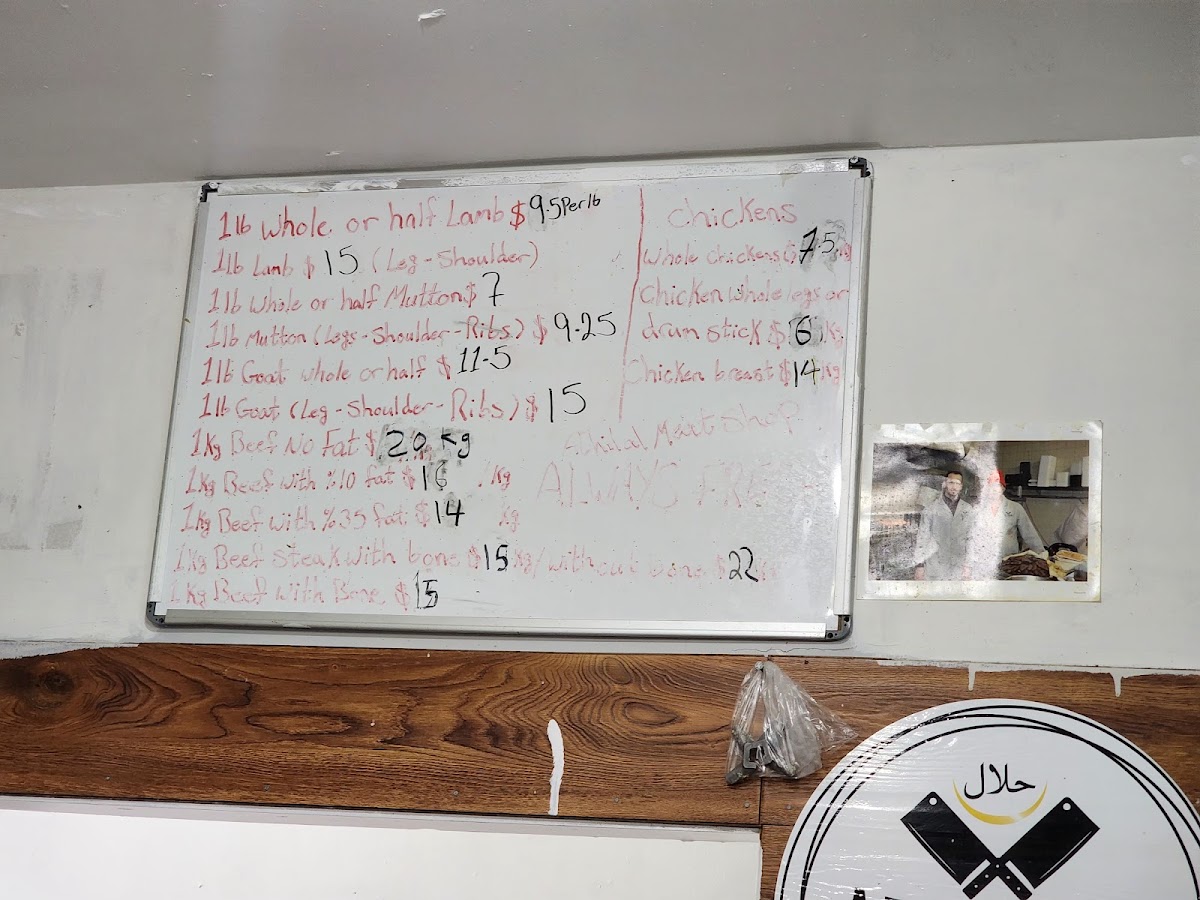 1lb whole or half Lamb $ 9.5 Per lb
1lb Lamb $ 15 (Leg-Shoulder)
1lb whole or half Mutton $ 7
1lb Mutton (Legs-Shoulder-Ribs) $ 9.25
1lb Goat whole or half $ 11.5
1lb Goat (Leg-Shoulder-Ribs) $ 15
1Kg Beef No Fat $ 20 Kg
1Kg Beef with %10 fat $ 16 /Kg
1Kg Beef with %35 fat $ 14 Kg
1Kg Beef Steak with bone $ 15 Kg/without bone $ 22 Kg
1Kg Beef with Bone $ 15
Chickens
Whole chickens $ 7.5 Kg
Chicken whole legs or
drum stick $ 6 /Kg
Chicken breast $ 14 Kg
Meat Shop
ALWAYS
حلال